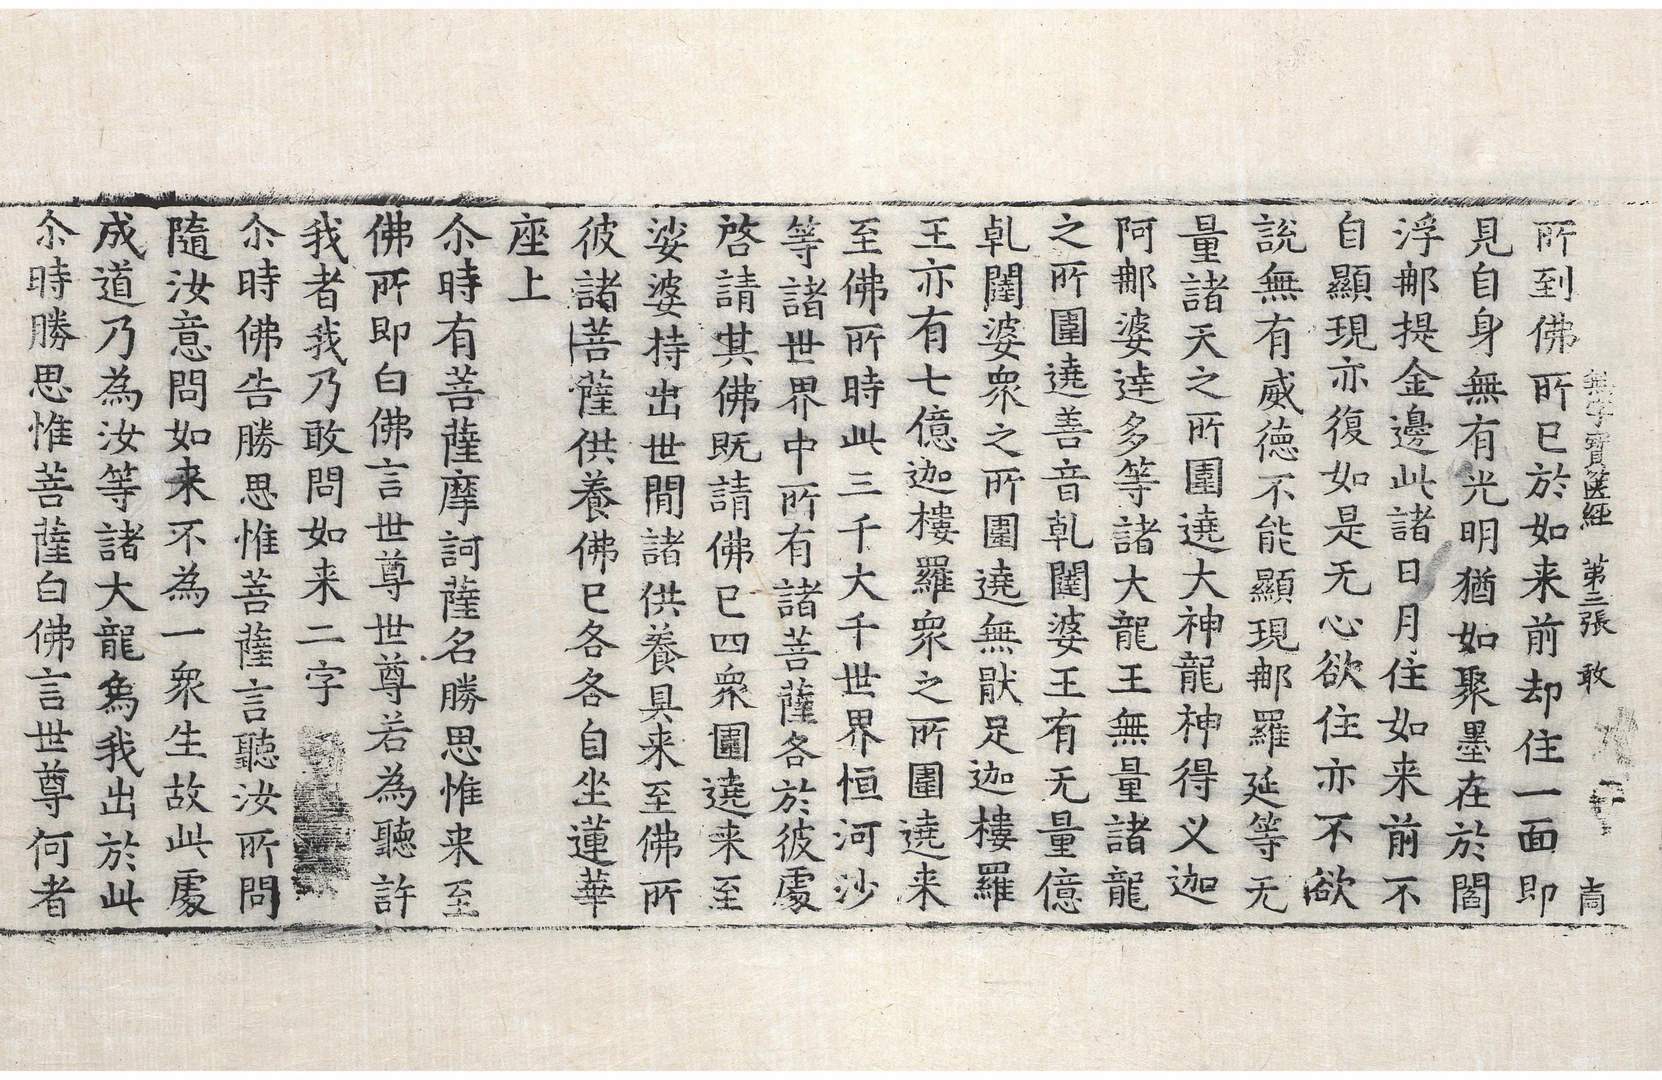 無字寶篋經 第三張 敢
所到佛所已於如来前却住一面即
見自身無有光明猶如聚墨在於閻
浮郍提金邊此諸日月住如来前不
自顯現亦復如是无心欲住亦不欲
說無有威德不能顯現郍羅延等无
量諸天之所圍遶大神龍神得义迦
阿郍婆達多等諸大龍王無量諸龍
之所圍遶善音乹闥婆王有无量億
乹闥婆衆之所圍遶無猒足迦樓羅
王亦有七億迦樓羅衆之所圍遶来
至佛所時此三千大千世界恒河沙
等諸世界中所有諸菩薩各於彼處
啓請其佛既請佛已四衆圍遶来至
娑婆持出世閒諸供養具来至佛所
彼諸菩薩供養佛已各各自坐蓮華
座上
尒時有菩薩摩訶薩名勝思惟来至
佛所即白佛言世尊世尊若為聽許
我者我乃敢問如来二字
尒時佛告勝思惟菩薩言聽汝所問
隨汝意問如来不為一衆生故此處
成道乃為汝等諸大龍為我出於此
尒時勝思惟菩薩白佛言世尊何者